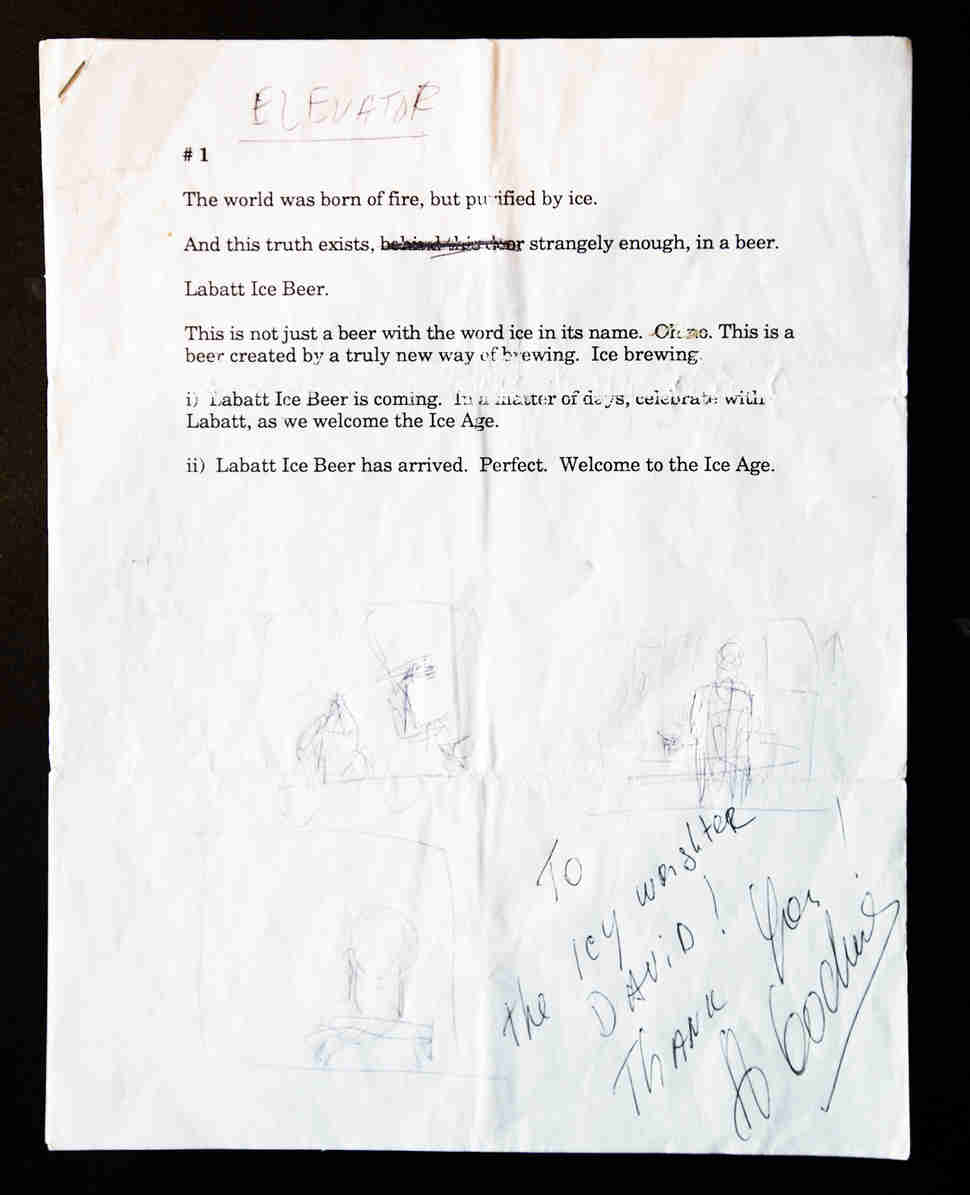 ELEVATOR
# 1
The world was born of fire, but purified by ice.
And this truth exists, behind this door strangely enough, in a beer.
Labatt Ice Beer.
This is not just a beer with the word ice in its name. Oh no. This is a
beer created by a truly new way of brewing. Ice brewing.
i) Labatt Ice Beer is coming. In a matter of days, celebrate with
Labatt, as we welcome the Ice Age.
ii) Labatt Ice Beer has arrived. Perfect. Welcome to the Ice Age.
To
the icy
DAViD!
THANK you!